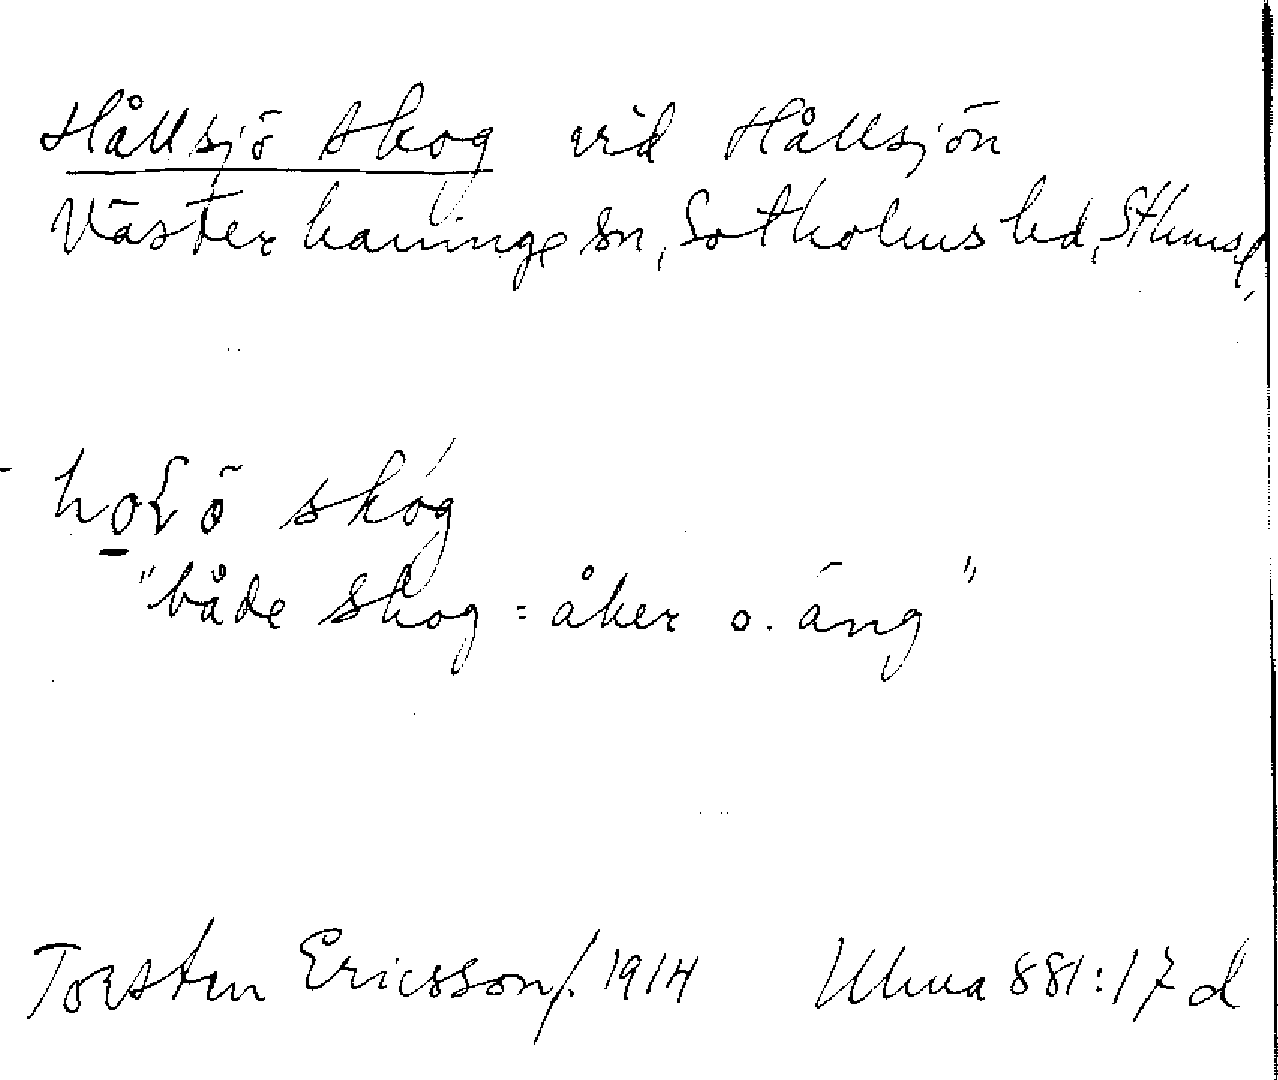 Hållsjö skog vid Hållsjön
Västerhaninge sn, Sotholms hd, Sthms l,
skóg
"både skog = åker o. äng"
Torsten Ericsson/. 1914 Ulma 881:17 d